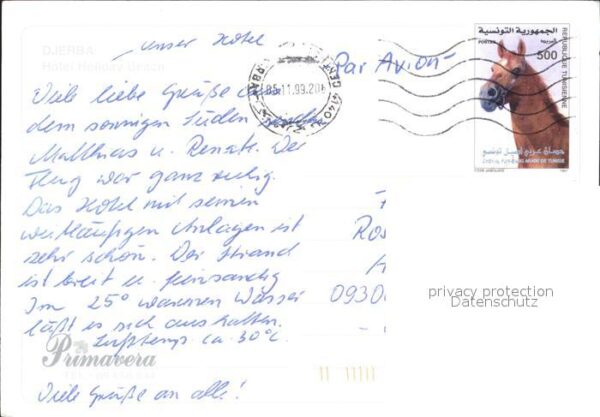 unser Hotel
DJERBA
Hotel Holiday Beach
Par Avion
05.11.99.20
الجمهورية التونسية
REPUBLIQUE TUNISIENNE
500
حصان عربي أصيل تونسي
Viele liebe Grüße aus
dem sonnigen Süden
Matthias u. Renate. Der
Flug war ganz ruhig.
Das Hotel mit seinen
weitläufigen Anlagen ist
sehr schön. Der Strand
ist breit u. feinsandig
Im 25° warmen Wasser
läßt es sich aushalten.
Lufttemp. ca. 30°C.
Primavera
Viele Grüße an alle!
Ros
0930
privacy protection
Datenschutz